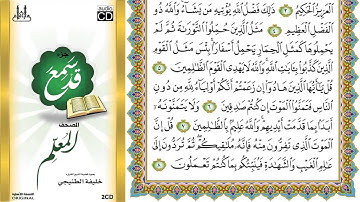 audio
CD
جزء
قد سمع
المصحف
المعلم
خليفة الطنيجي
النسخة الأصلية
ORIGINAL
2CD
ٱلْعَزِيزُ ٱلْحَكِيمُ ٣ ذَٰلِكَ فَضْلُ ٱللَّهِ يُؤْتِيهِ مَن يَشَآءُ وَٱللَّهُ ذُو
ٱلْفَضْلِ ٱلْعَظِيمِ ٤ مَثَلُ ٱلَّذِينَ حُمِّلُوا۟ ٱلتَّوْرَىٰةَ ثُمَّ لَمْ
يَحْمِلُوهَا كَمَثَلِ ٱلْحِمَارِ يَحْمِلُ أَسْفَارًۢا بِئْسَ مَثَلُ ٱلْقَوْمِ
ٱلَّذِينَ كَذَّبُوا۟ بِـَٔايَٰتِ ٱللَّهِ وَٱللَّهُ لَا يَهْدِى ٱلْقَوْمَ ٱلظَّٰلِمِينَ ٥
قُلْ يَٰٓأَيُّهَا ٱلَّذِينَ هَادُوٓا۟ إِن زَعَمْتُمْ أَنَّكُمْ أَوْلِيَآءُ لِلَّهِ مِن دُونِ
ٱلنَّاسِ فَتَمَنَّوُا۟ ٱلْمَوْتَ إِن كُنتُمْ صَٰدِقِينَ ٦ وَلَا يَتَمَنَّوْنَهُۥٓ
أَبَدًۢا بِمَا قَدَّمَتْ أَيْدِيهِمْ وَٱللَّهُ عَلِيمٌۢ بِٱلظَّٰلِمِينَ ٧ قُلْ إِنَّ
ٱلْمَوْتَ ٱلَّذِى تَفِرُّونَ مِنْهُ فَإِنَّهُۥ مُلَٰقِيكُمْ ثُمَّ تُرَدُّونَ إِلَىٰ
عَٰلِمِ ٱلْغَيْبِ وَٱلشَّهَٰدَةِ فَيُنَبِّئُكُم بِمَا كُنتُمْ تَعْمَلُونَ ٨